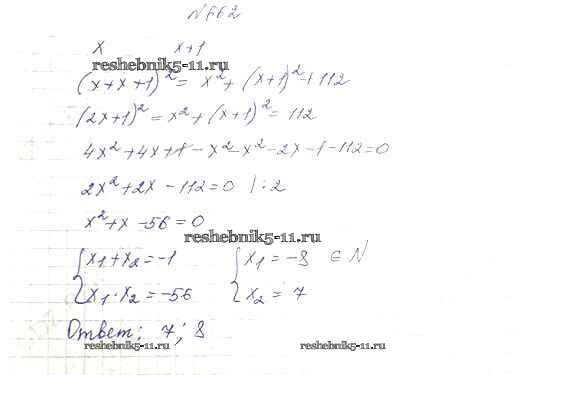 N662
x x+1
reshebnik5-11.ru
(x+x+1)² = x² + (x+1)² + 112
(2x+1)² = x² + (x+1)² = 112
4x² + 4x + 1 - x² - x² - 2x - 1 - 112 = 0
2x² + 2x - 112 = 0 | : 2
x² + x - 56 = 0
reshebnik5-11.ru
{ x₁ + x₂ = -1 { x₁ = -8 ∈ N
{ x₁ · x₂ = -56 { x₂ = 7
Ответ: 7; 8
reshebnik5-11.ru reshebnik5-11.ru